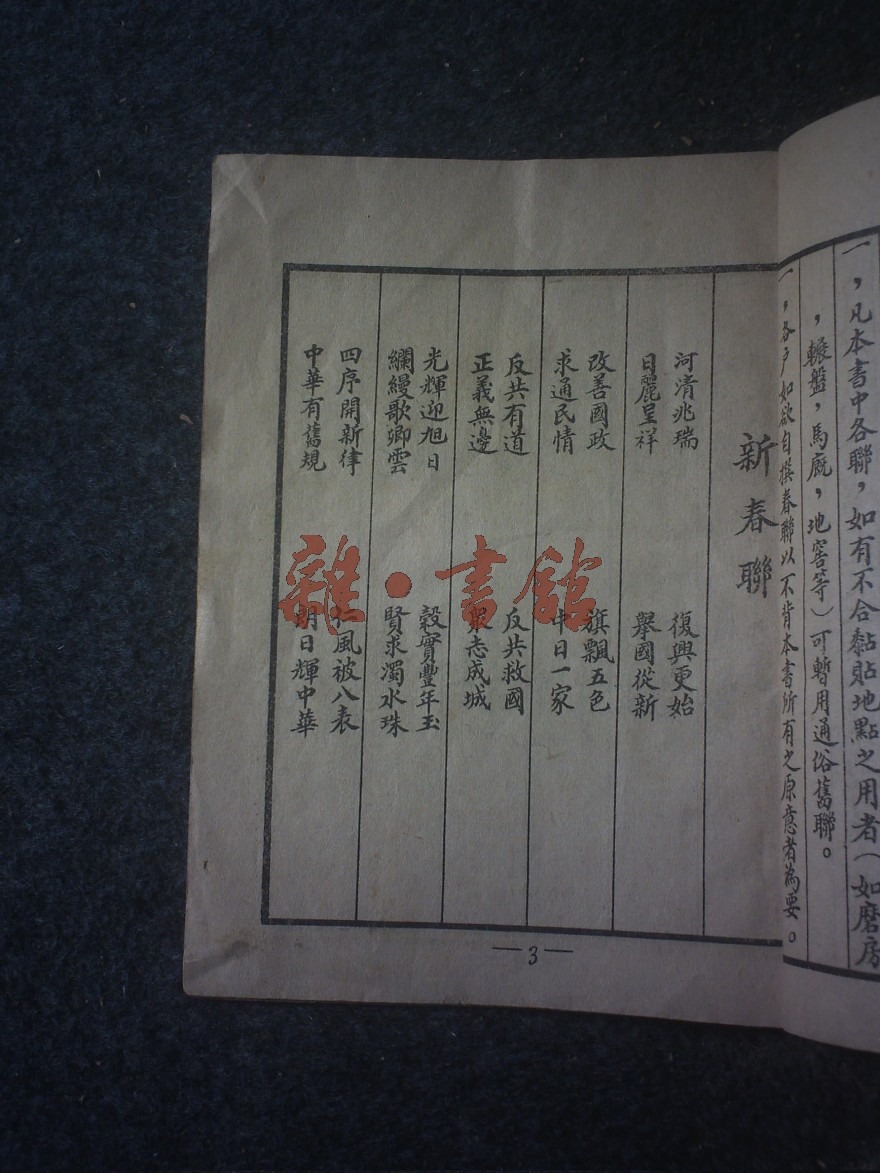 一，凡本書中各聯，如有不合黏貼地點之用者（如磨房
，輾盤，馬廐，地窖等）可暫用通俗舊聯。
一，各户如欲自撰春聯以不背本書所有之原意者為要。
新春聯
河清兆瑞　復興更始
日麗呈祥　舉國從新
改善國政　旗飄五色
求通民情　中日一家
反共有道　反共救國
正義無邊　眾志成城
光輝迎旭日　穀實豐年玉
爛縵歌卿雲　賢求濁水珠
四序開新律　仁風被八表
中華有舊規　朗日輝中華
—3—
雜·書館